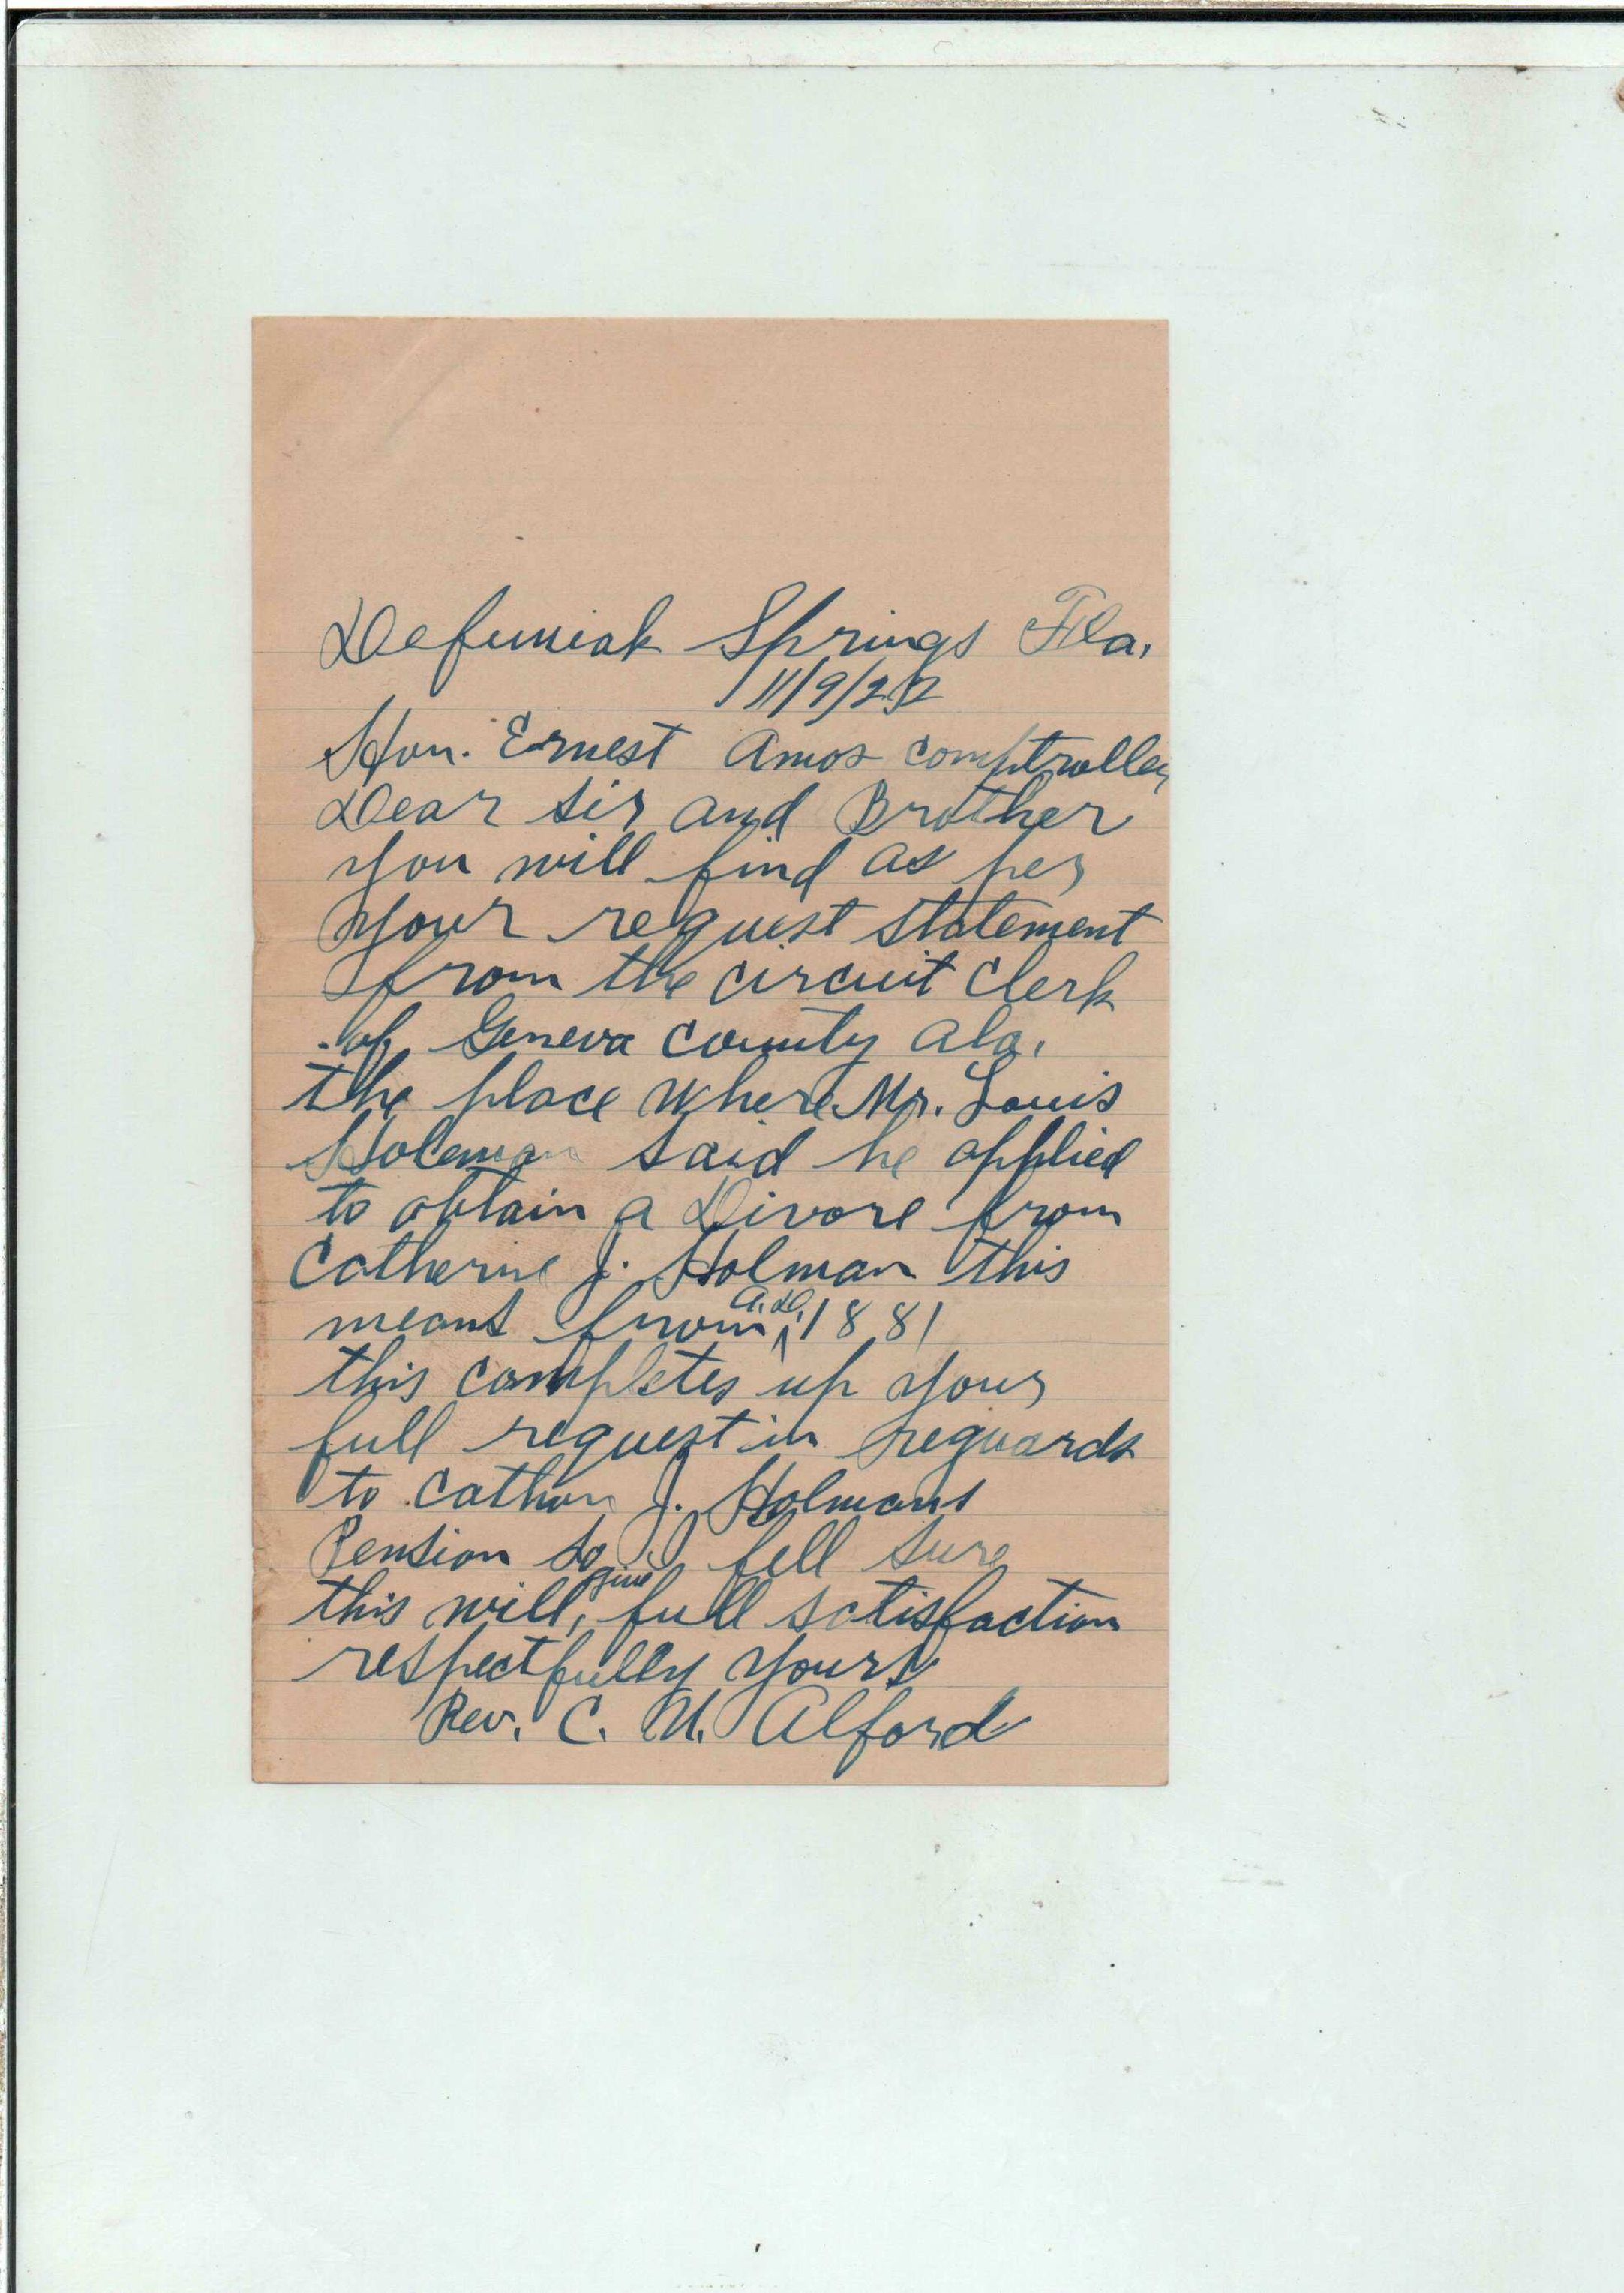 Defuniak Springs Fla.
11/9/22
Hon. Ernest Amos comptroller
Dear sir and Brother
you will find as per
your request statement
from the circuit Clerk
of Geneva county ala.
the place where Mr. Louis
Holeman said he applied
to obtain a Divore from
Catherine J. Holman this
means from A.D. 1881
this completes up your
full request in reguards
to Cathern J. Holmans
Pension so I fell sure
this will give full satisfaction
respectfully yours
Rev. C. M. Alford